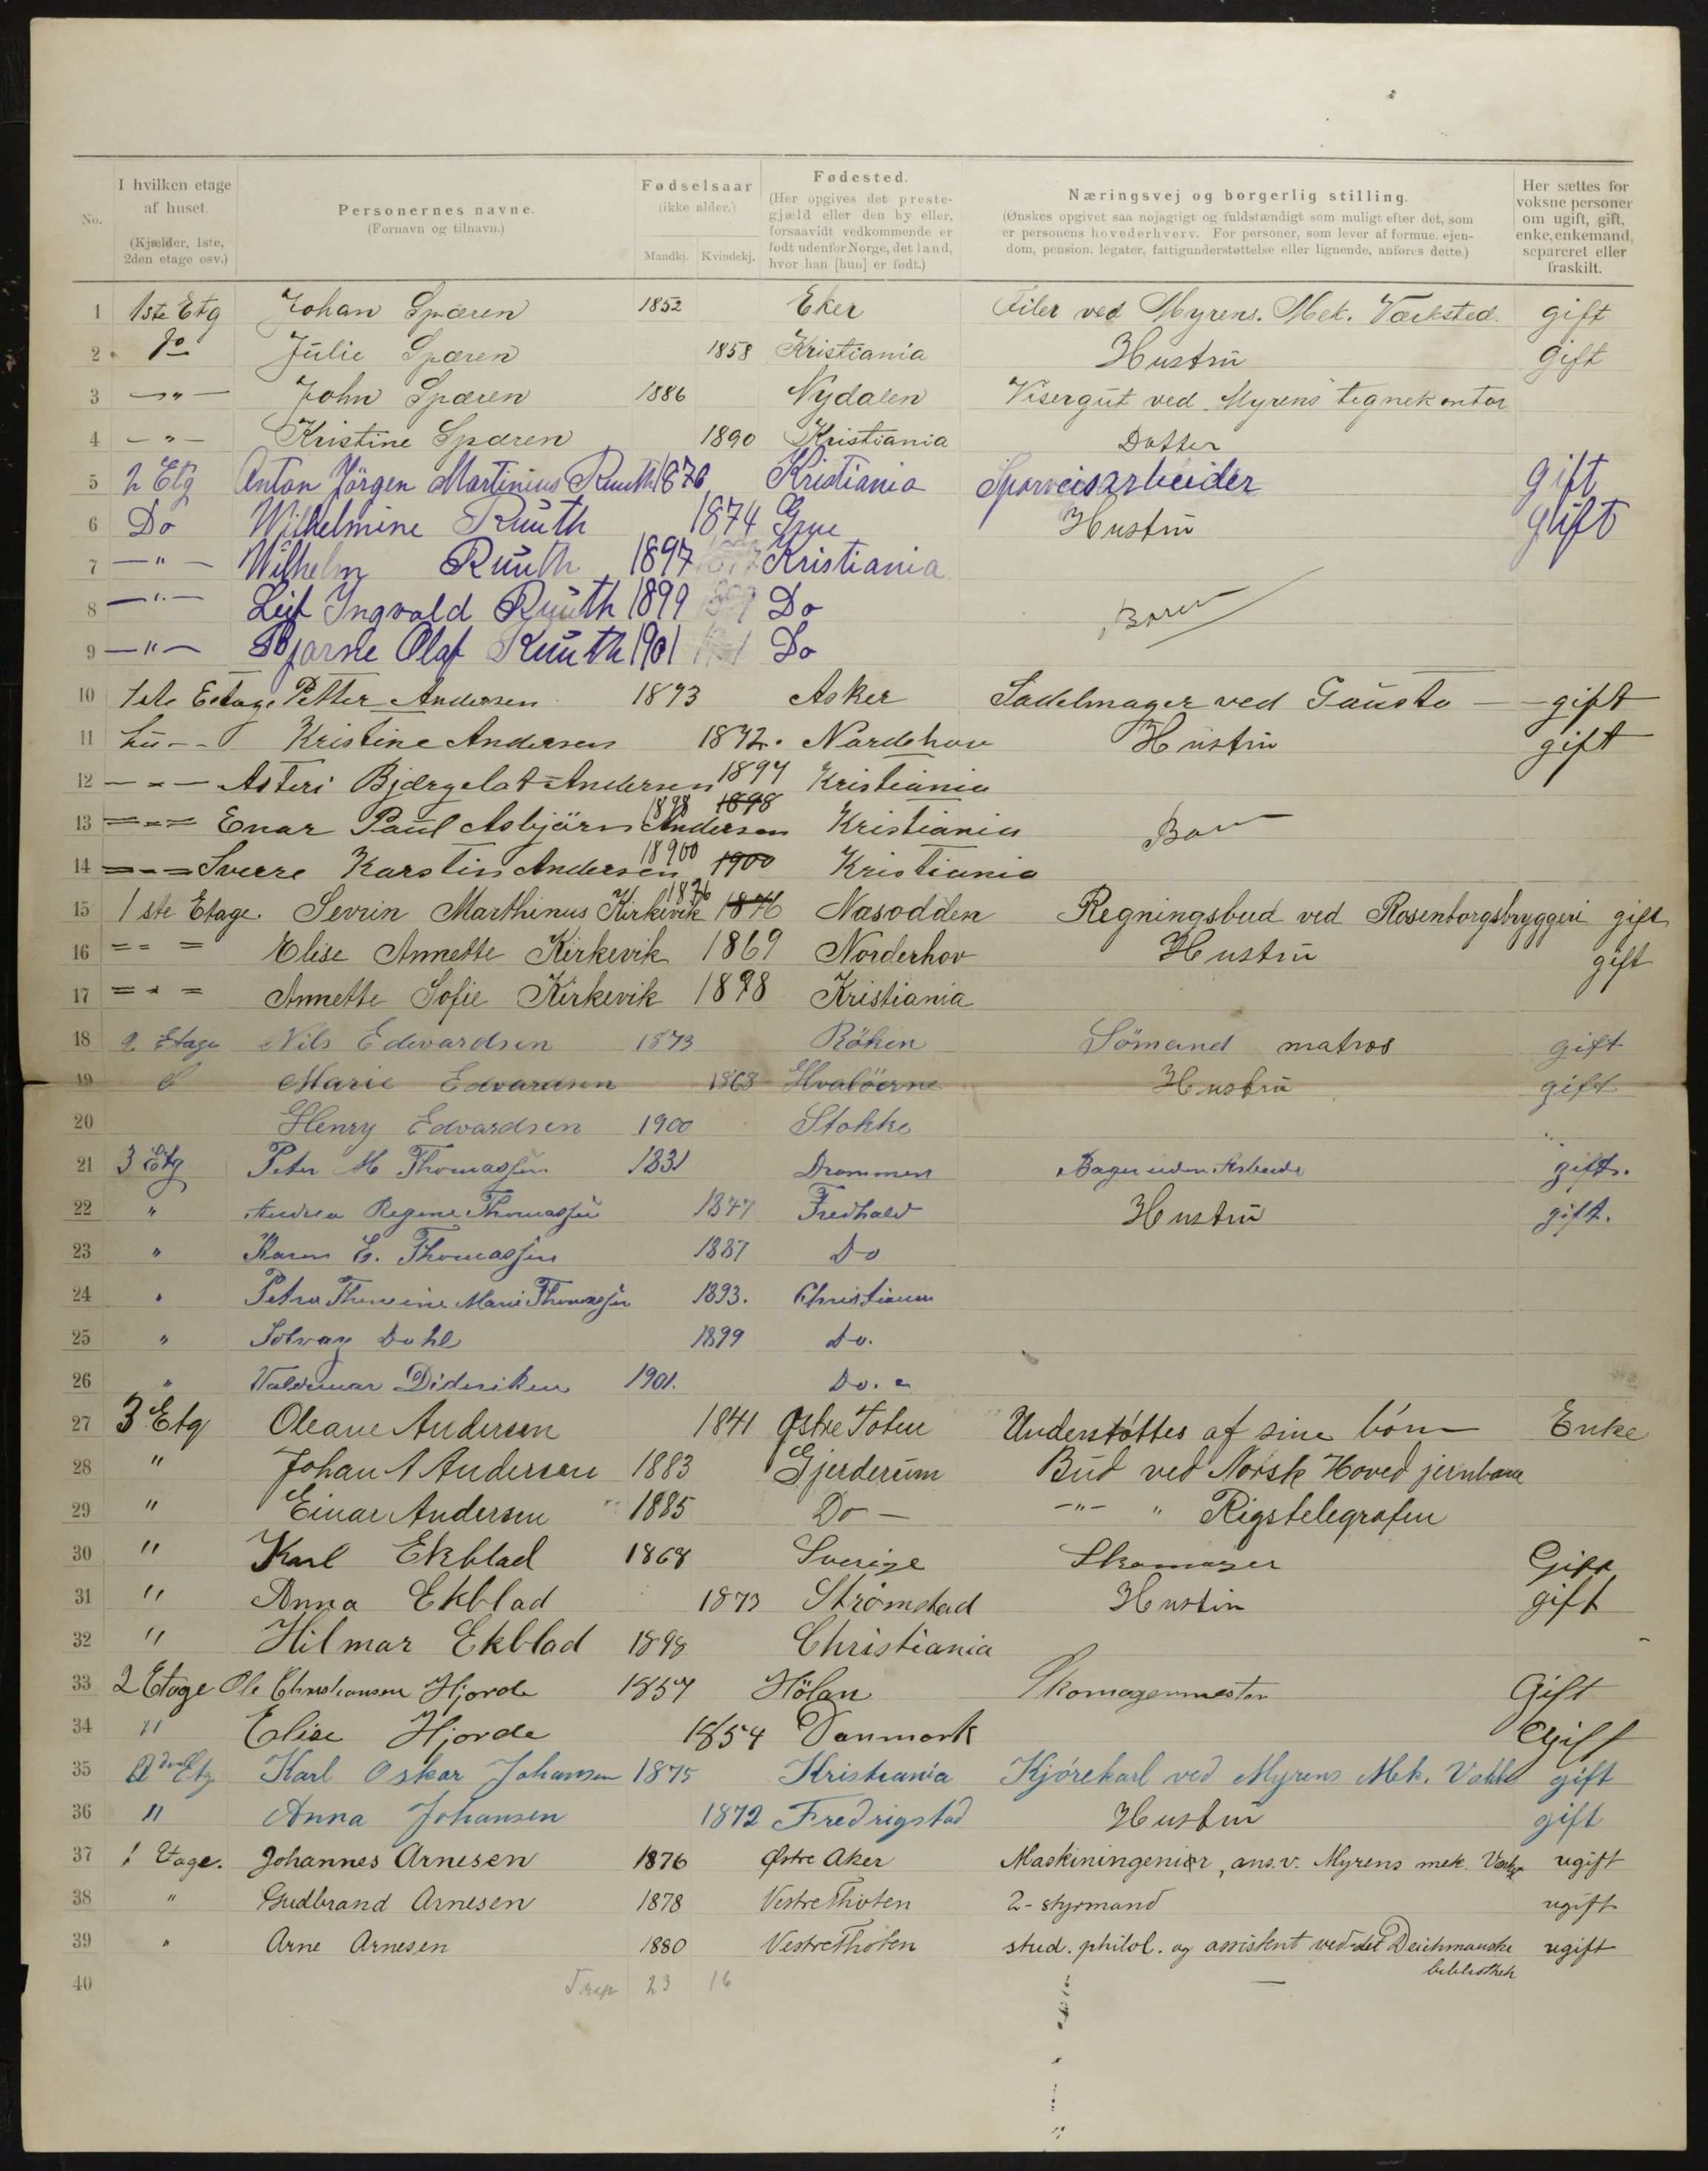 No.
I hvilken etage af huset.
(Kjælder, 1ste, 2den etage osv.)
Personernes navne.
(Fornavn og tilnavn.)
Fødselsaar
(ikke alder.)
Mandkj. Kvindekj.
Fødested.
(Her opgives det præste-
gjæld eller den by eller,
forsaavidt vedkommende er
født udenfor Norge, det land,
hvor han [hun] er født.)
Næringsvej og borgerlig stilling.
(Ønskes opgivet saa nøjagtigt og fuldstændigt som muligt efter det, som
er personens hovederhverv. For personer, som lever af formue, ejen-
dom, pension, legater, fattigunderstøttelse eller lignende, anføres dette.)
Her sættes for
voksne personer
om ugift, gift,
enke, enkemand,
separeret eller
fraskilt.
1 1ste Etg Johan Spæren 1852 Eker Filer ved Myrens. Mek. Værksted. gift
2 Do Julie Spæren 1858 Kristiania Hustru gift
3 — " — John Spæren 1886 Nydalen Visergut ved Myrens tegnekontor
4 — " — Kristine Spæren 1890 Kristiania Datter
5 2 Etg Anton Jörgen Martinius Ruuth 1870 Kristiania Sporveisarbeider gift
6 Do Wilhelmine Ruuth 1874 Grue Hustru gift
7 — " — Wilhelm Ruuth 1897 Kristiania
8 — " — Leif Ingvald Ruuth 1899 Do Barn
9 — " — Bjarne Olaf Ruuth 1901 Do
10 1ste Etage Petter Andersen 1873 Asker Sadelmager ved Gausta — gift
11 Kristine Andersen 1872. Nordehov Hustru gift
12 — " — Asteri Andersen 1894 Kristiania
13 — " — Enar Paul Asbjörn Andersen 1898 1898 Kristiania Barn
14 — " — Sverre Karstin Andersen 18900 1900 Kristiania
15 1ste Etage. Sevrin Marthinus Kirkevik 1876 1876 Nasodden Regningsbud ved Rosenborgsbryggeri gift
16 = = = Elise Annette Kirkevik 1869 Norderhov Hustru gift
17 = " = Annette Sofie Kirkevik 1898 Kristiania
18 2 Etage Nils Edvardsen 1873 Röken Sömand matros gift
19 Marie Edvardsen 1868 Hvalöerne Hustru gift
20 Henry Edvardsen 1900 Stokke
21 3 Etg Peter M Thomassen 1831 Drammen Bager uden Arbeide gift.
22 " Andrea Regine Thomassen 1847 Fredhald Hustru gift.
23 " Karen E. Thomassen 1887 Do
24 " Petra Marie Thomassen 1893. Christiania
25 " Solvay Dahl 1899 Do.
26 " Valdemar Dideriksen 1901. Do.
27 3 Etg Oleane Andersen 1841 Østre Toten Understøttes af sine börn Enke
28 " Johan A Andersen 1883 Gjerderum Bud ved Norsk Hoved jernbane
29 " Einar Andersen 1885 Do — — " — " Rigstelegrafen
30 " Karl Ekblad 1868 Sverige Skomager Gift
31 " Anna Ekblad 1873 Strömstad Hustru gift
32 " Hilmar Ekblad 1898 Christiania
33 2 Etage Ole Christiansen Hjorde 1857 Hölan Skomagermester Gift
34 " Elise Hjorde 1854 Danmark Gift
35 2den Etg Karl Oskar Johansen 1875 Kristiania Kjörekarl ved Myrens Mek. gift
36 " Anna Johansen 1872 Fredrigstad Hustru gift
37 1 Etage. Johannes Arnesen 1876 Østre Aker Maskiningeniør, ans. v. Myrens mek. ugift
38 " Gudbrand Arnesen 1878 Vestre Thoten 2-styrmand ugift
39 " Arne Arnesen 1880 Vestre Thoten stud. philol. og assistent ved det Deichmanske bibliothek ugift
40 23 16